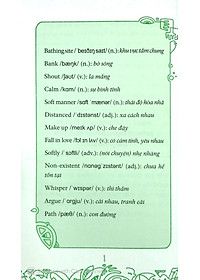 Bathing site /ˈbeɪðɪŋ saɪt/ (n.): khu vực tắm chung
Bank /bæŋk/ (n.): bờ sông
Shout /ʃaʊt/ (v.): la mắng
Calm /kɑm/ (n.): sự bình tĩnh
Soft manner /sɑft ˈmænər/ (n.): thái độ hòa nhã
Distanced /ˈdɪstənst/ (adj.): xa cách nhau
Make up /meɪk ʌp/ (v.): che đậy
Fall in love /fɔl ɪn lʌv/ (v.): có cảm tình, yêu nhau
Softly /ˈsɔftli/ (adv.): (nói chuyện) nhẹ nhàng
Non-existent /nɑnəgˈzɪstənt/ (adj.): chưa hề
tồn tại
Whisper /ˈwɪspər/ (v.): thì thầm
Argue /ˈɑrgju/ (v.): cãi nhau, tranh cãi
Path /pæθ/ (n.): con đường